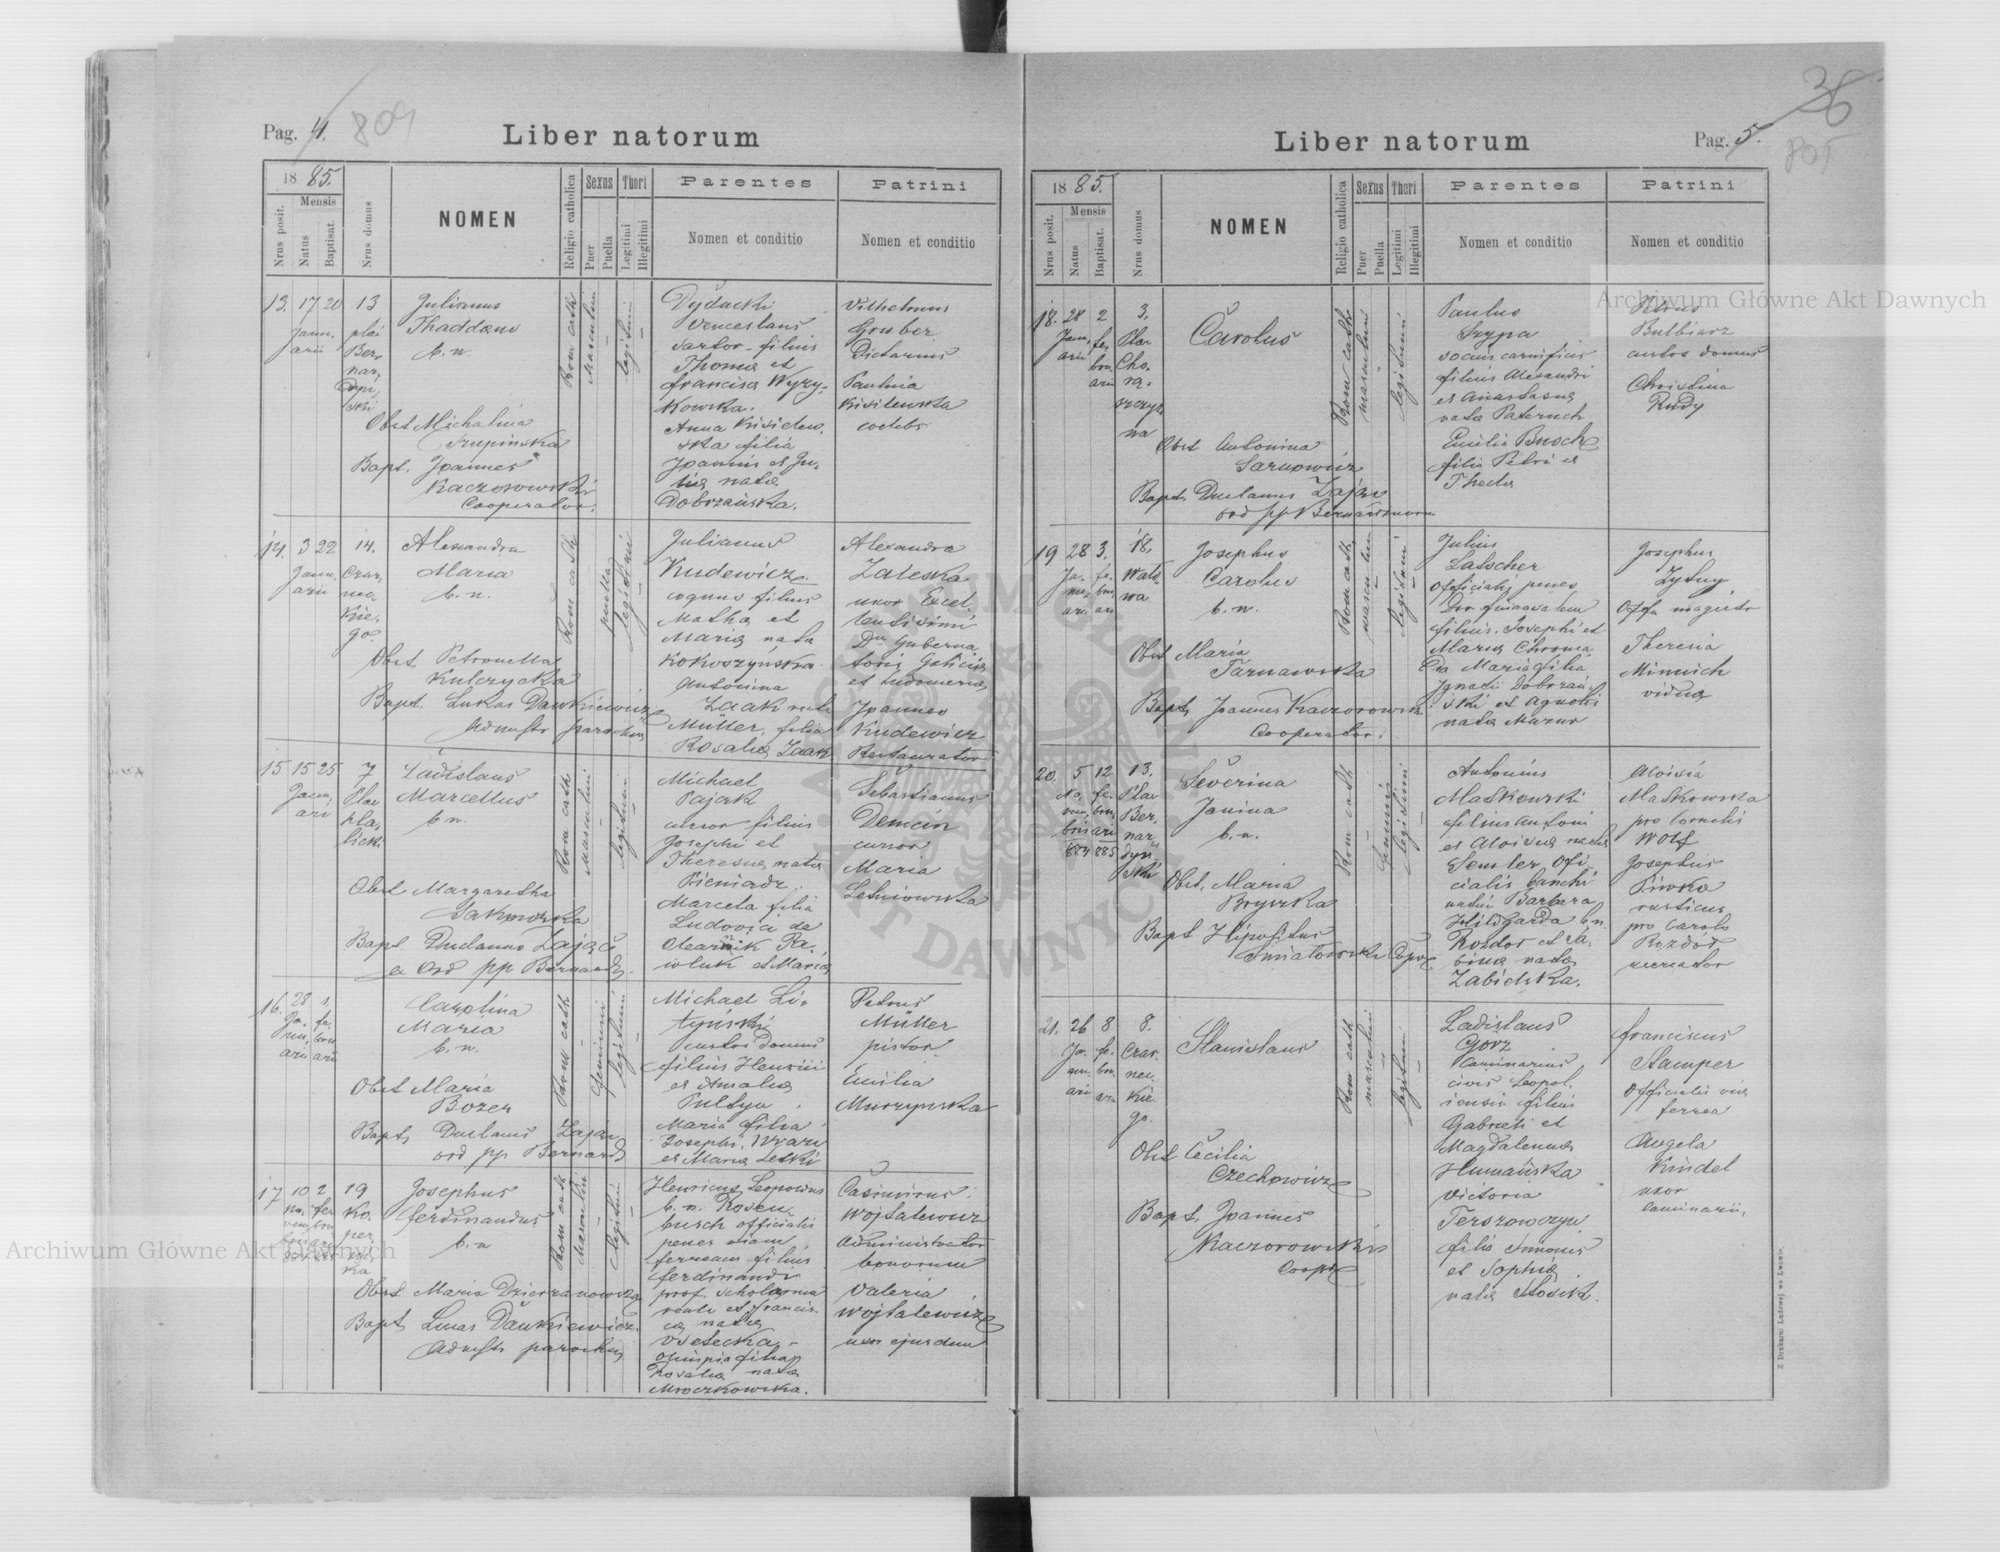 Pag. 4. 804
Liber natorum
1885.
Mensis
Nrus posit.
Natus
Baptisat.
Nrus domus
NOMEN
Religio catholica
Sexus
Puer
Puella
Thori
Legitimi
Illegitimi
Parentes
Nomen et conditio
Patrini
Nomen et conditio
13. 17 20 13
Januarii
plac
Ber,
nar,
dyń,
ski
Julianus
Thaddaeus
b. n.
Obst Michalina
Szupińska
Bapt. Joannes
Kaczorowski
Cooperator.
Rom cath
Masculini
legitimi
Dydacki
Venceslaus
Sartor - filius
Thomae et
Francisca Wyzy,
kowska.
Anna Kisielew,
ska filia
Joannis et Ju,
liae nata
Dobrzańska.
Vilhelmus
Gruber
Dietarius
Paulina
Kisilewska
coelebs
14. 3 22 14.
Januarii
Czar,
nec,
kie,
go.
Alexandra
Maria
b. n.
Obst Petronella
Kulczycka
Bapt. Lukas Dankiewicz
Admstr parochiae
Rom cath
puella
legitimi
Julianus
Kudewicz
coquus filius
Matha et
Maria nata
Kokoszyńska
Antonina
Zaak nata
Müller, filia
Rosaliae Zaak
Alexandra
Zaleska
uxor Excel,
lentissimi
Dn Guberna
toris Galiciae
et Ludomeriae
Joannes
Kudewicz
Restaurator
15 15 25 7
Januarii
Plac
Ha,
licki
Ladislaus
Marcellus
b n.
Obst Margaretha
Bapt Duclanus Zając
ex Ord pp Bernard
Rom cath
Masculini
legitimi
Michael
Pająk
cursor filius
Josephi et
Theresiae nata
Pieniadz
Marcela filia
Ludovici de
Olearnik Pa,
wluk et Maria
Sebastianus
Demcon
cursor
Maria
Leśniowska
16. 28 1.
Ja, fe,
nu, bru
arii arii
Carolina
Maria
b. n.
Obst Maria
Bozer
Bapt. Duclanus Zając
ord pp Bernard
Rom cath
feminini
legitimi
Michael Li,
tyński
Custos Domus
filius Henrici
et Amalia
Pultyn
Maria filia
Josephi Wrany
et Maria Leski
Petrus
Müller
pistor
Emilia
Murzynska
17 10 2 19
Ko,
per,
nic,
ka
Josephus
Ferdinandus
b. n
Obst Maria Dzierzanowska
Bapt. Lucas Dankiewicz
Admstr parochiae
Rom cath
Masculini
legitimi
Henricus Leopoldus
b. n. Rosen,
busch officialis
penes viam
ferream filius
Ferdinandi
prof Scholarum
reali et Francis
ca nata
Vsetecka -
Olimpia filia
Rosalia nata
Mroczkowska.
Casimirus
Wojtalewicz
Administrator
bonorum
Valeria
Wojtalewicz
uxor ejusdem
36
Pag. 5.
805
Liber natorum
1885.
Mensis
Nrus posit.
Natus
Baptisat.
Nrus domus
NOMEN
Religio catholica
Sexus
Puer
Puella
Thori
Legitimi
Illegitimi
Parentes
Nomen et conditio
Patrini
Nomen et conditio
18. 28 2 3,
Jan, fe,
arii bru,
arii
Plac
Cho,
rą,
szczyz,
na
Carolus
Obst Antonina
Sarnowicz
Bapt. Duclanus Zając
ord pp Bernardinorum
Rom cath
masculini
legitimi
Paulus
Szypa
socius carnificis
filius Alexandri
et Anastasiae
nata Paternek
Emilia Busch
filia Petri et
Thecla
Petrus
Bulbiarz
custos domus
Christina
Rudy
19 28 3. 18,
Ja, fe,
nu, bru,
arii arii
Wało,
wa
Josephus
Carolus
b. n.
Obst Maria
Tarnawska
Bapt, Joannes Kaczorowski
Cooperator.
Rom cath,
masculini
legitimi
Julius
Latscher
Officialis penes
filius. Josephi et
Maria Chroma
Maria filia
Ignatii Dobrzań,
ski et Agnetis
nata Mazur
Josephus
Zytny
Offic magistr
Theresia
Minnich
vidua
20. 5 12 13.
No, fe,
vem, bru,
bris arii
884 885
Plac
Ber,
nar,
dyń,
ski
Severina
Janina
b. n.
Obst, Maria
Bryszka
Bapt Hipolitus
Śmiatowski Coop
Rom cath
feminini
legitimi
Antonius
Maskowski
filius Antoni
et Aloisia nata
Semler, Ofi,
cialis banchi
Barbara
Hildgarda b n.
Rozdor et Sa,
bina nata
Zabielska.
Aloisia
Maskowska
pro Cornelii
Wolf
Josephus
Piwko
rusticus
pro Carolo
Rozdor
mercator
21. 26 8 8.
Ja, fe,
nu, bru,
arii arii
Czar,
nec,
kie,
go.
Stanislaus
Obst Cecilia
Czechowicz
Bapt, Joannes
Kaczorowski
Coopr
Rom cath
masculini
legitimi
Ladislaus
Gorz
Caminarius
civis Leopol,
iensis filius
Gabrieli et
Magdalena
Humańska
Victoria
Terszowczyn
filia Simonis
et Sophia
nata Słosik.
Franciscus
Stamper
Officialis via
ferrea
Angela
Kindel
uxor
Caminarii.
Z Drukarni Ludowej we Lwowie.
Archiwum Główne Akt Dawnych
Archiwum Główne Akt Dawnych